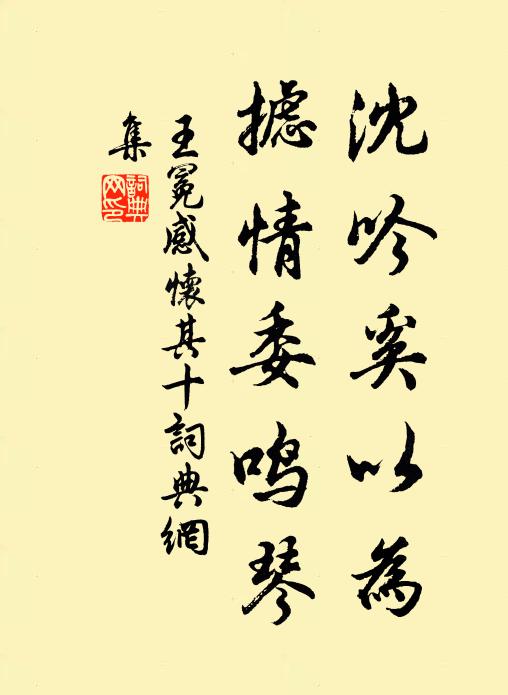 沈吟奚以為
攄情委鳴琴
王冕感懷其十詞典網
集
詞典网印